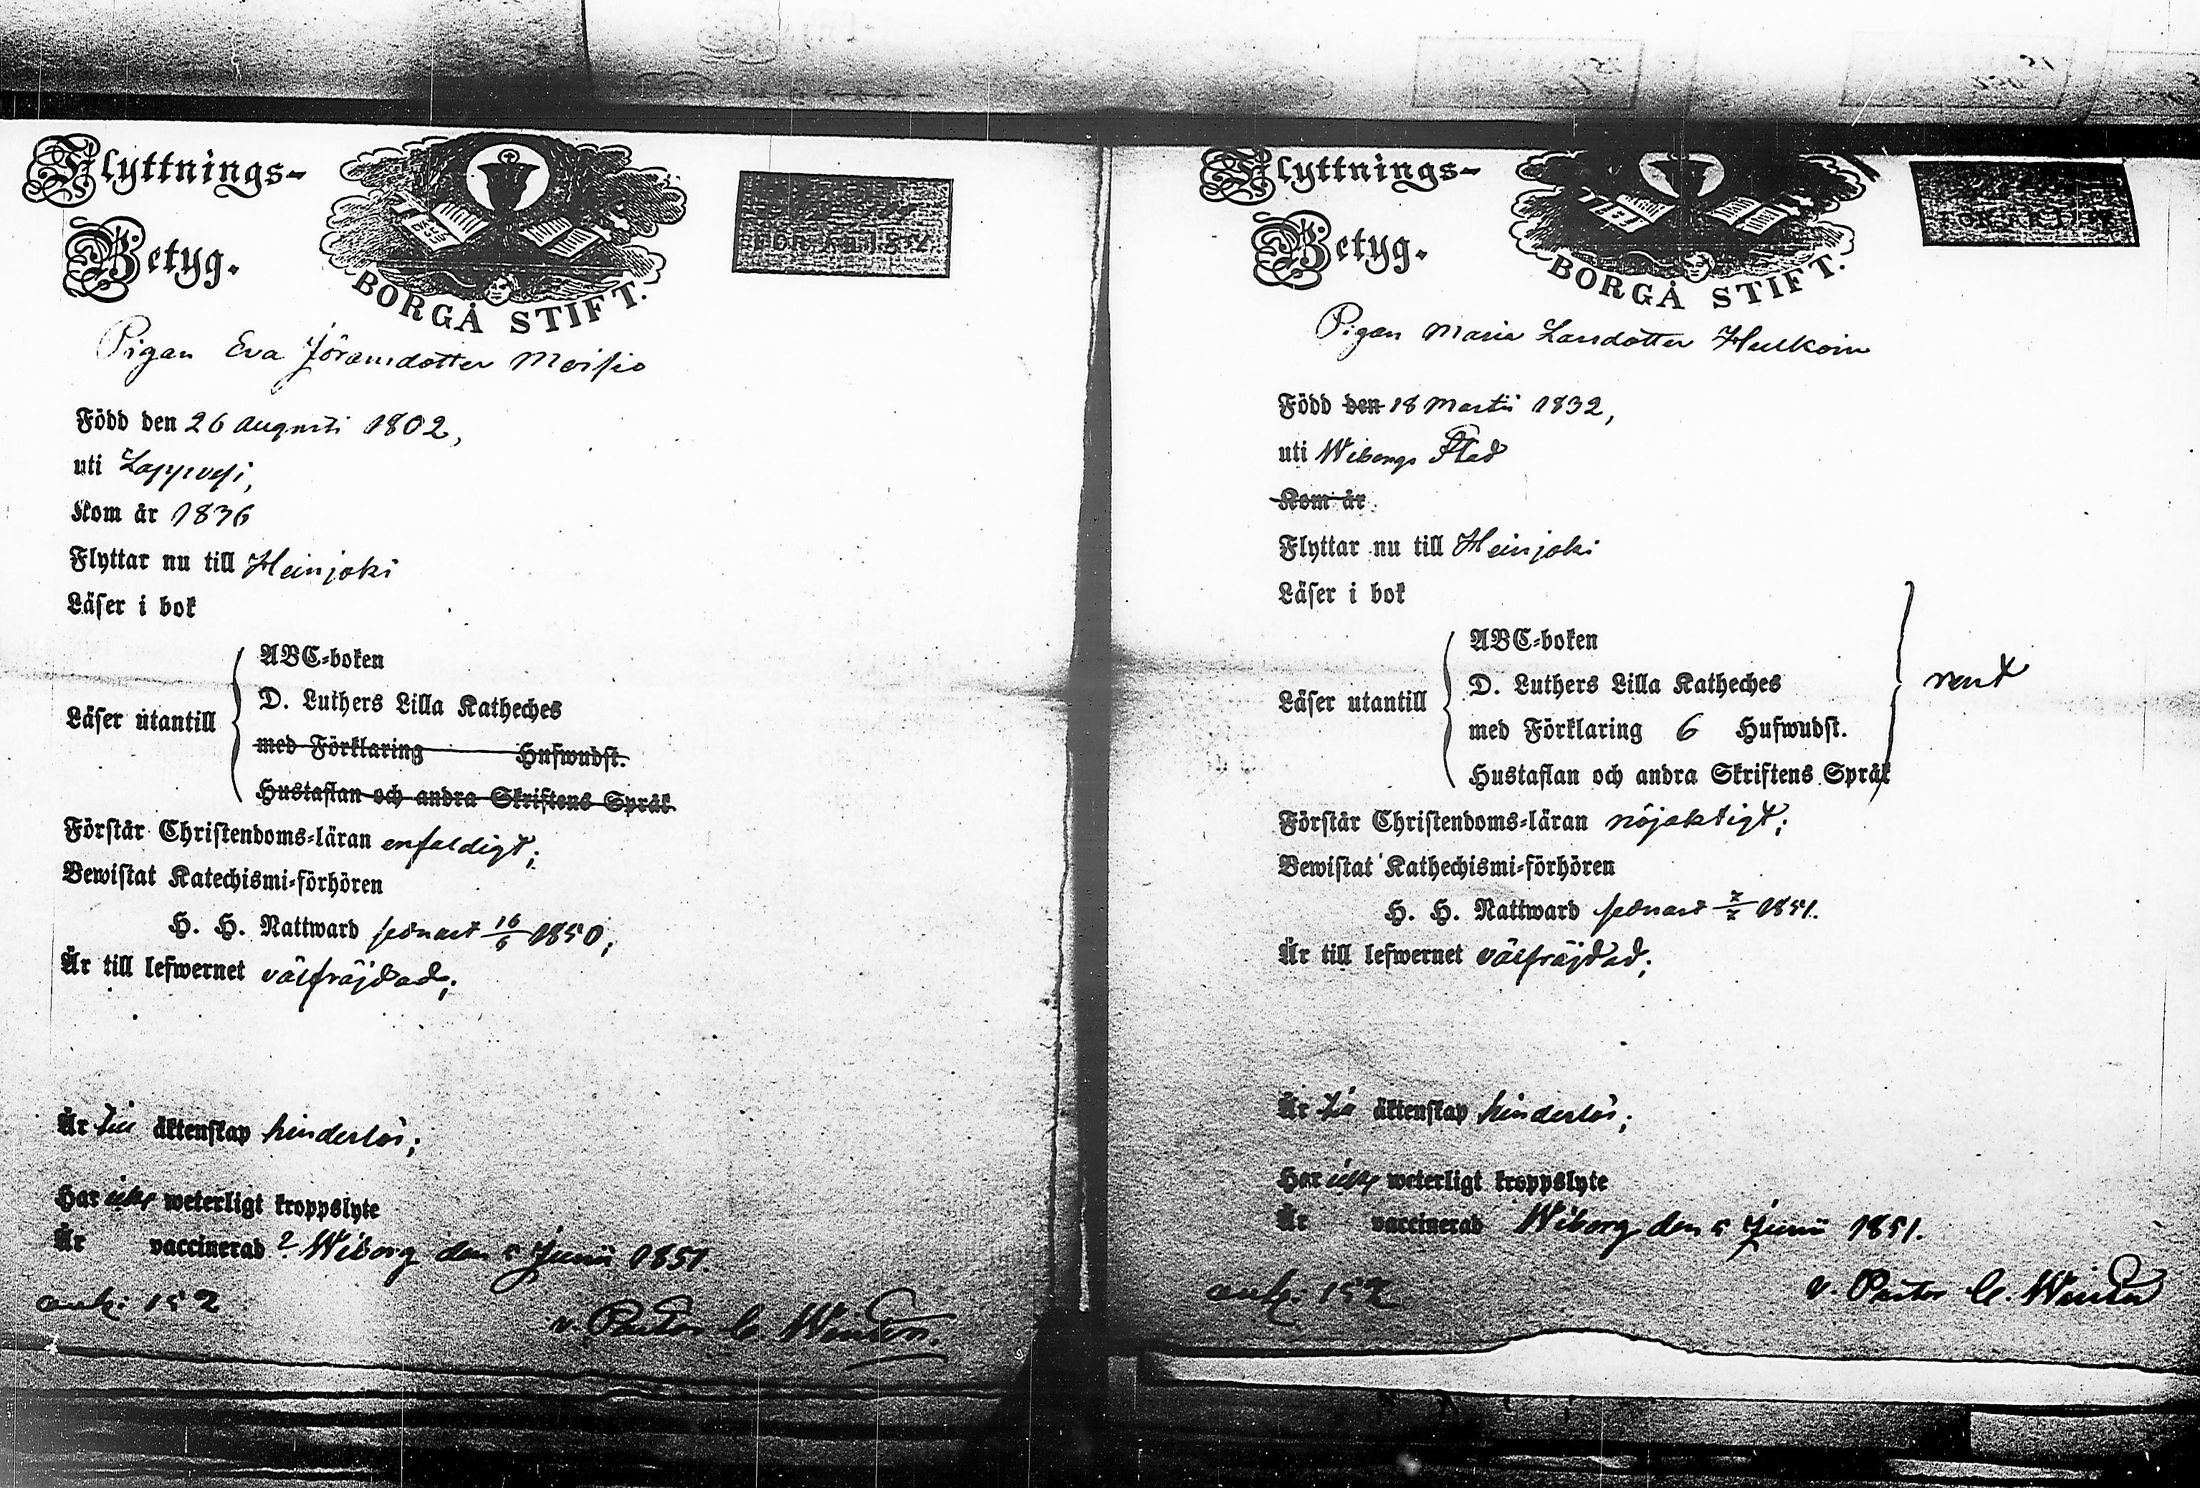 Flyttnings-
Betyg.
BORGÅ STIFT.
Pigan Eva Jöransdotter Moisio
Född den 26 Augusti 1802,
uti Lappvesi,
Kom år 1836
Flyttar nu till Heinjoki
Läser i bok
Läser utantill
ABC-boken
D. Luthers Lilla Katheches
med Förklaring Hufwudst.
Hustaflan och andra Skriftens Språk
Förstår Christendoms-läran enfaldigt;
Bewistat Katechismi-förhören
H. H. Nattward senast 16/6 1850;
Är till lefwernet välfräjdad;
Är till äktenskap hinderlös;
Har icke weterligt kroppslyte
Är vaccinerad ? Wiborg den 5 Junii 1851.
152
v. Pastor C. Winter.
Flyttnings-
Betyg.
BORGÅ STIFT.
Pigan Maria Larsdotter
Född den 18 Martii 1832,
uti Wiborgs Stad
Kom år
Flyttar nu till Heinjoki
Läser i bok
Läser utantill
ABC-boken
D. Luthers Lilla Katheches
med Förklaring 6 Hufwudst.
Hustaflan och andra Skriftens Språk
rent
Förstår Christendoms-läran nöjaktigt;
Bewistat Kathechismi-förhören
H. H. Nattward senast 2/2 1851.
Är till lefwernet välfräjdad;
Är till äktenskap hinderlös;
Har icke weterligt kroppslyte
Är vaccinerad Wiborg den 5 Junii 1851.
152
v. Pastor C. Winter